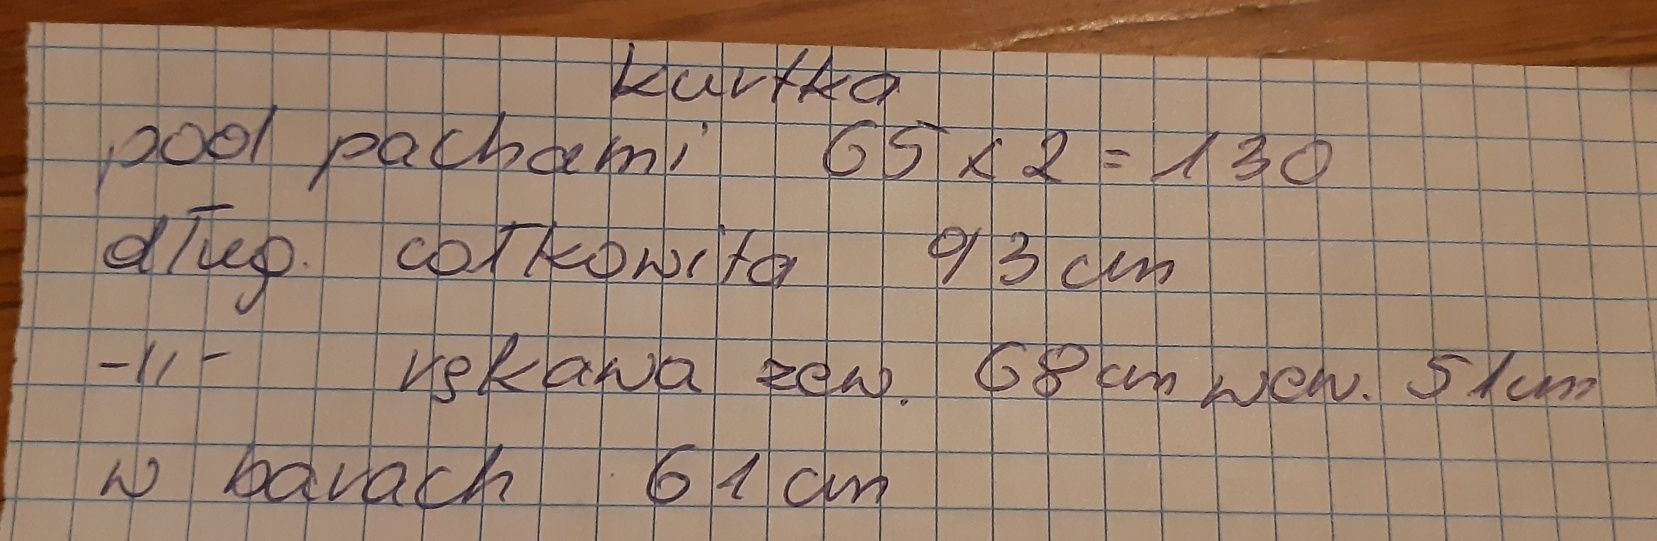 kurtka
pod pachami 65 x 2 = 130
dług. całkowita 93 cm
-||- rękawa zew. 68 cm wew. 51 cm
w barach 61 cm